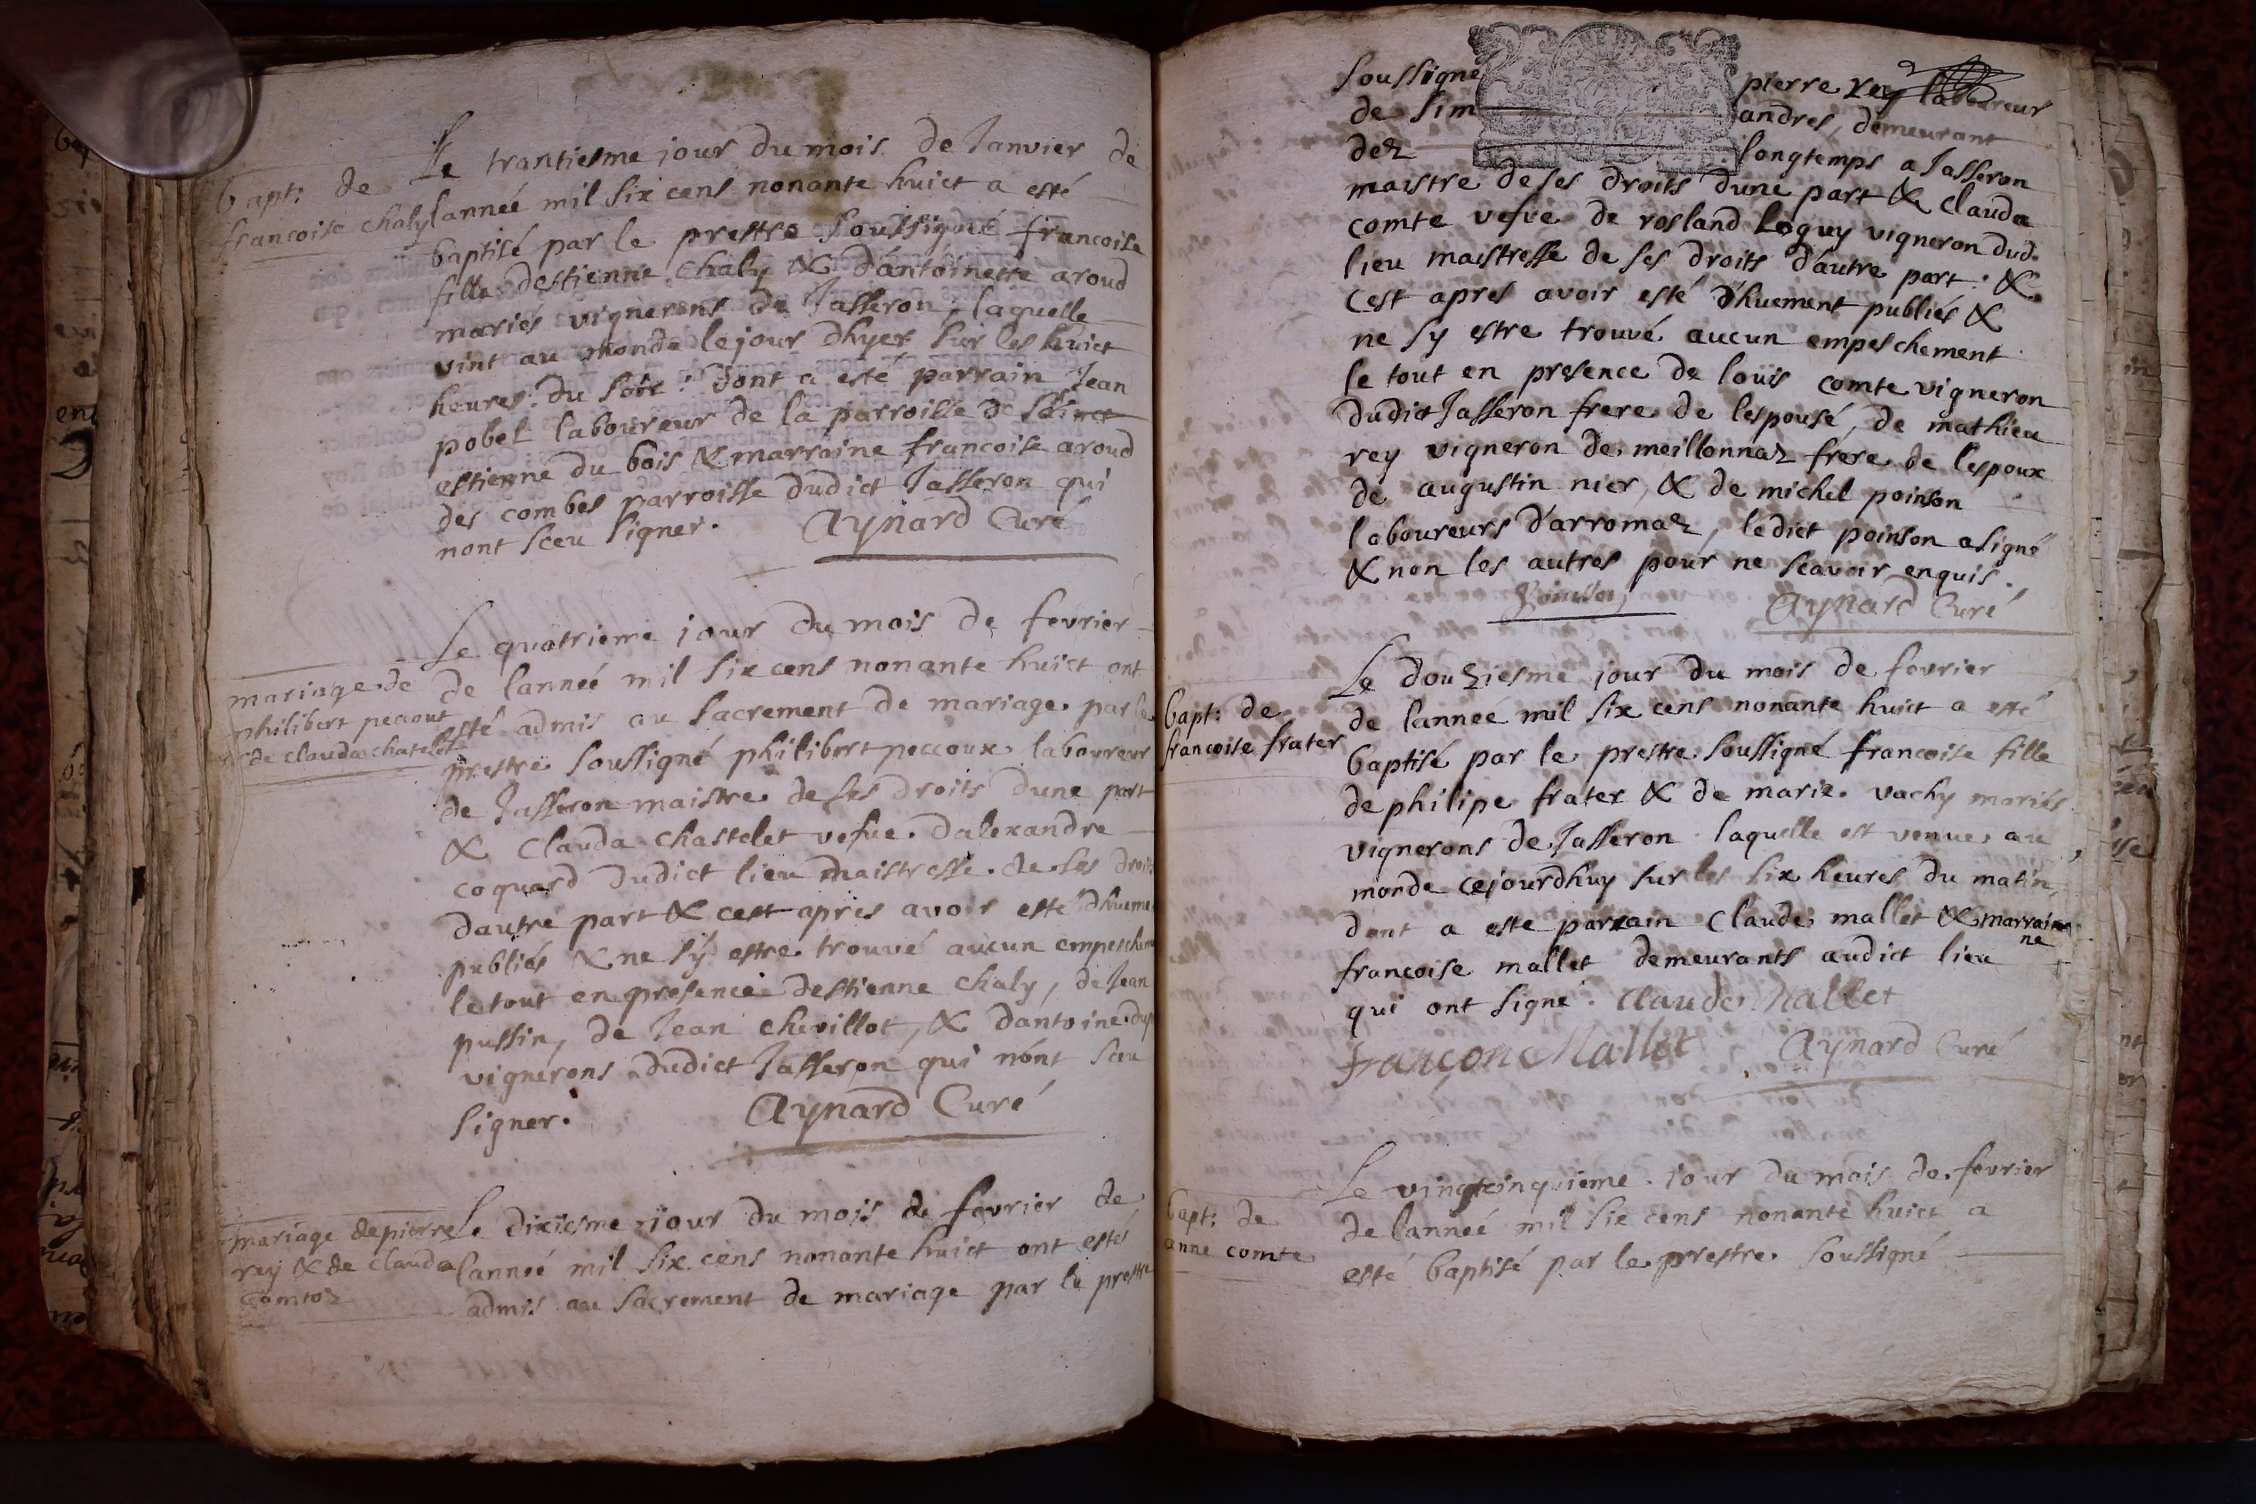 bapt: de
francoise chaly
Le trantiesme jour du mois de Janvier de
lanneé mil six cens nonante huict a esté
baptisé par le prestre soussigné francoise
fille destienne chaly & dantoinette aroud
mariés vignerons de Jasseron, laquelle
vint au monde le jour dhyer sur les huict
heures du soir: dont a esté parrain Jean
pobel laboureur de la parroisse de sainct
estienne du bois & marraine francoise aroud
des combes parroisse dudict Jasseron qui
nont sceu signer. Aynard Curé
mariage de
philibert peccout
& de clauda chatelet
Le quatrieme jour du mois de fevrier
de lanneé mil six cens nonante huict ont
esté admis au sacrement de mariage par le
prestre soussigné philibert peccoux laboureur
de Jasseron maistre de ses droits dune part
& Clauda chastelet vefve dalexandre
coquard dudict lieu maistresse de ses droits
dautre part & cest apres avoir esté dhueme
publiés & ne sy estre trouvé aucun empeschem
le tout en presence destienne chaly, de Jean
pussin, de Jean chevillot, & dantoine
vignerons dudict Jasseron qui nont sceu
signer. Aynard Curé
mariage de pierre
rey & de Clauda
comtoz
Le dixiesme jour du mois de fevrier de
lanneé mil six cens nonante huict ont estés
admis au sacrement de mariage par le prestre
soussigné pierre rey laboureur
de simandres, demeurant
dez longtemps a Jasseron
maistre de ses droits dune part & Clauda
comte vefve de rosland Loguy vigneron dud.
lieu maistresse de ses droits d'autre part. &
cest apres avoir esté d'huement publiés &
ne sy estre trouvé aucun empeschement
le tout en presence de loüis comte vigneron
dudict Jasseron frere de lespousé, de mathieu
rey vigneron de meillonnaz frere de lespoux
de augustin nier, & de michel poinson
laboureurs d'arromaz, ledict poinson a signé
& non les autres pour ne scavoir enquis.
Poinson Aynard Curé
bapt: de
francoise frater
Le douziesme jour du mois de fevrier
de lanneé mil six cens nonante huict a esté
baptisé par le prestre soussigné francoise fille
de philipe frater & de marie vachy mariés
vignerons de Jasseron laquelle est venue au
monde cejourdhuy sur les six heures du matin,
dont a este parrain Claude mallet & marrai
ne
francoise mallet demeurants audict lieu
qui ont signé. Claude Mallet
françon Mallet Aynard Curé
bapt: de
anne comte
Le vingtcinquieme jour du mois de fevrier
de lanneé mil six cens nonante huict a
esté baptisé par le prestre soussigné